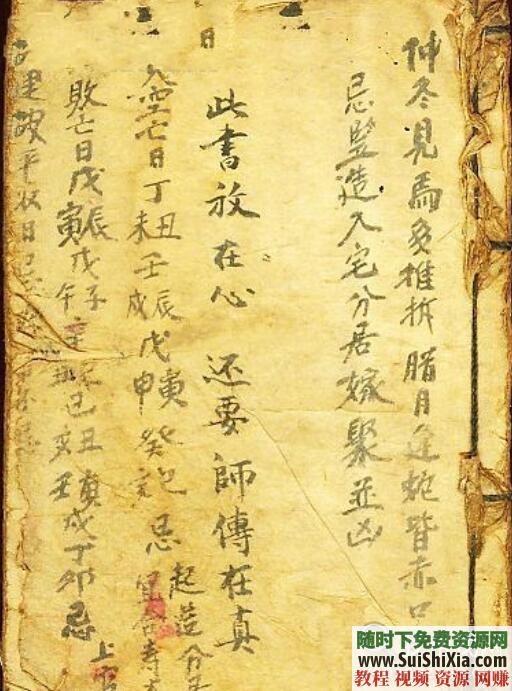 仲冬見馬多推折 腊月逢蛇皆赤口
忌豎造入宅分居嫁聚並凶
日
此書放在心 還要師傳在真
空亡日丁丑未壬辰戌戊寅申癸 忌 起造分
敗亡日戊辰戊寅戊子午 己丑亥 壬寅戌丁卯忌 上
建破平收日
随时下免费资源网
www.SuiShiXia.com
教程 视频 资源 网赚